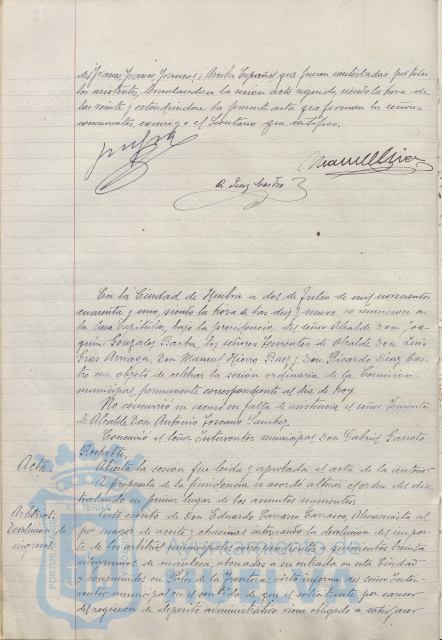 de ¡Franco, Franco, Franco! ¡Arriba España! que fueron contestadas por todos
los asistentes, levantandose la sesión acto seguido, siendo la hora de
las veinte y extendiendose la presente acta que firman los señores
concurrentes, conmigo el Secretario que certifico.
R. Diaz Castro
En la Ciudad de Huelva a dos de Julio de mil novecientos
cuarenta y uno siendo la hora de las diez y nueve se reunieron en
la Casa Capitular, bajo la presidencia del señor Alcalde Don Joa-
quin Gonzalez Barba, los señores Tenientes de Alcalde Don Luis
Arriaga, Don Manuel Hierro Baez y Don Ricardo Diaz Cas-
tro con objeto de celebrar la sesión ordinaria de la Comisión
municipal permanente correspondiente al dia de hoy.
No concurrió ni excusó su falta de asistencia el señor Teniente
de Alcalde Don Antonio Toscano Sanchez.
Concurrió el señor Interventor municipal Don Gabriel Garrote
Acta.
Abierta la sesión fue leida y aprobada el acta de la anterior
A propuesta de la presidencia se acordó alterar el orden del dia
tratandose en primer lugar de los asuntos siguientes.
Arbitrios.
Devolución de
ingresos.
Visto escrito de Don Eduardo Carrasco Carrasco, Almacenista al
por mayor de aceite y chacinas interesando la devolución del impor-
te de los arbitrios municipales correspondiente a quinientos treinta
kilogramos de manteca, abonados a su entrada en esta Ciudad
y consumidos en Palos de la Frontera; visto informe del señor Inter-
ventor municipal en el sentido de que el solicitante por carecer
del regimen de deposito administrativo viene obligado a satisfacer